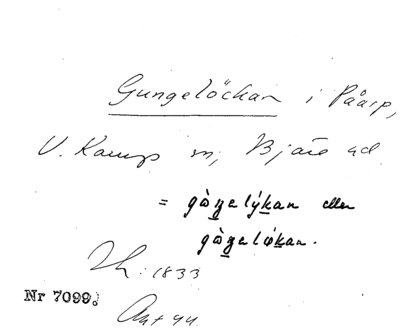 Gungelöckan i Påarp,
V. Karup sn, Bjäre hd
= gòŋelýkan eller
gòŋeløkan.
Th. 1833
Nr 7099.